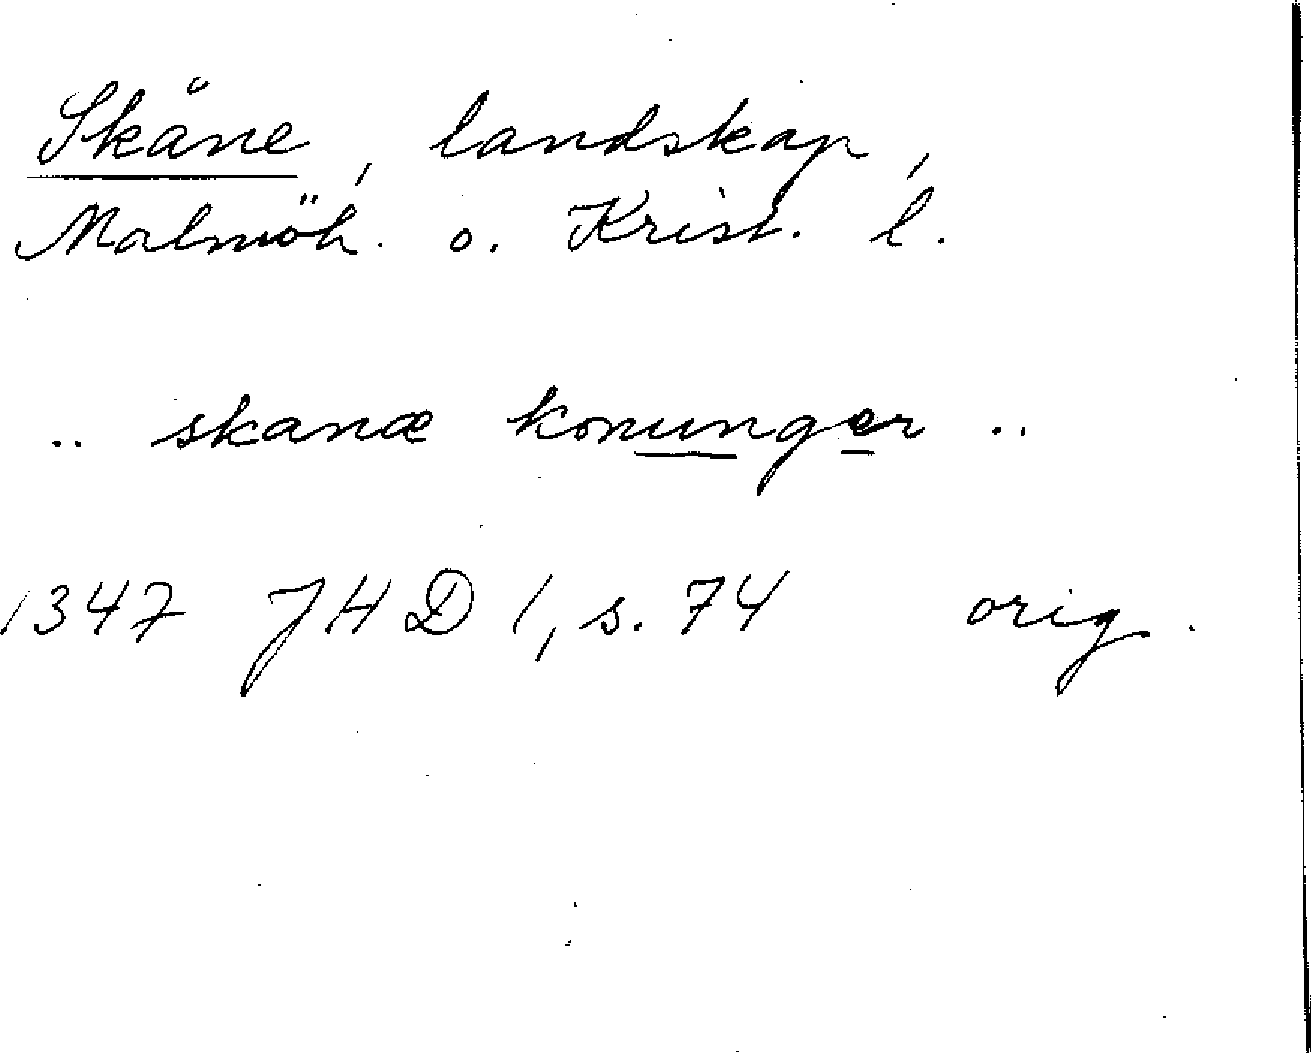 Skåne, landskap,
Malmöh. o. Krist. l.
.. skanæ konunger ..
1347 JHD 1, s. 74 orig.